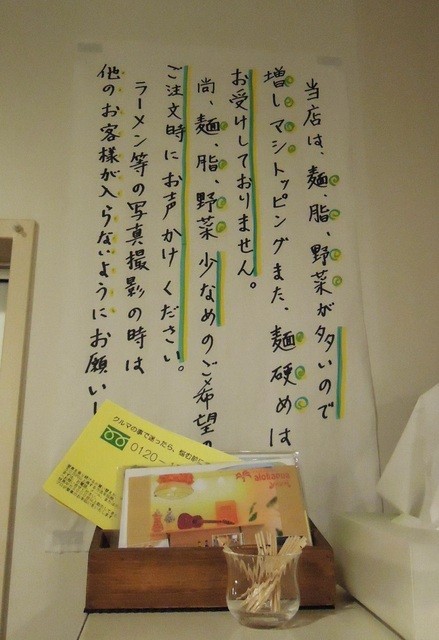 当店は、麺、脂、野菜が多いので
増しマシトッピングまた、麺硬めは
お受けしておりません。
尚、麺、脂、野菜少なめのご希望の
ご注文時にお声かけください。
ラーメン等の写真撮影の時は
他のお客様が入らないようにお願い
クルマの事で迷ったら、悩む前に
0120-